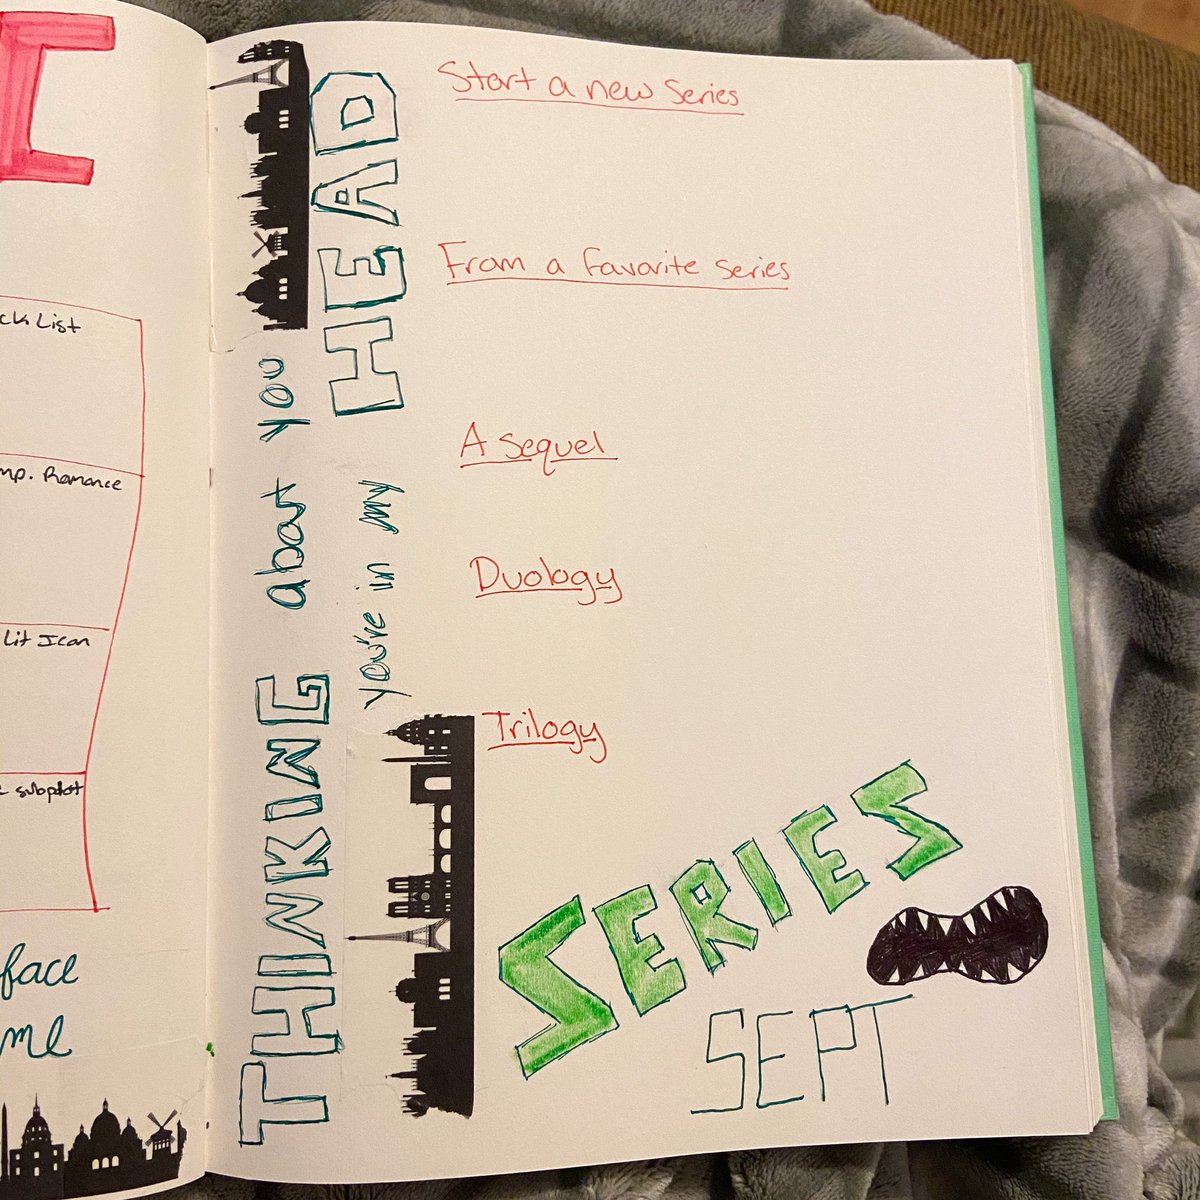 I
ck List
mp. Romance
Lit Icon
subplot
face
me
THINKING about you
you're in my HEAD
Start a new Series
From a favorite series
A sequel
Duology
Trilogy
SERIES
SEPT